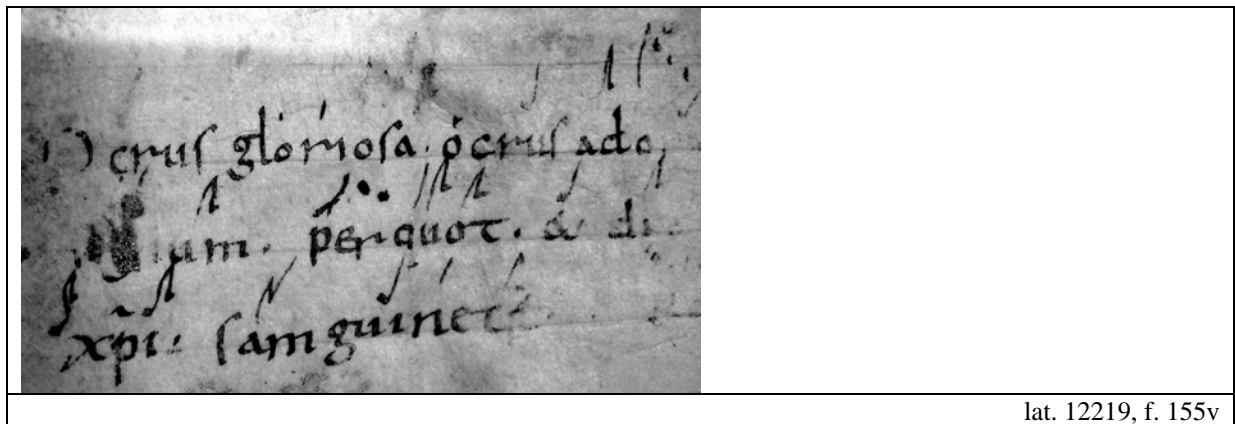 O crus gloriosa. o crus ado
ium. per quot. & di
xp̄i. samguine
lat. 12219, f. 155v